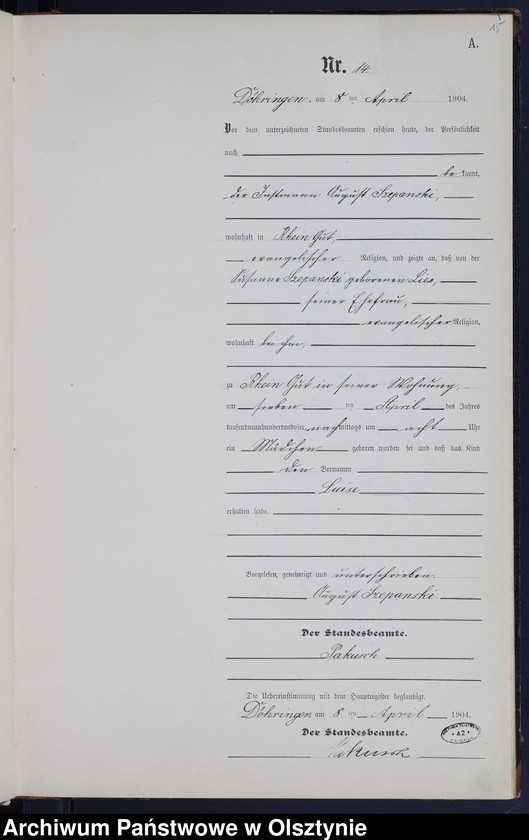 15
A.
Nr. 14.
Döhringen, am 8ten April 1904.
Vor dem unterzeichneten Standesbeamten erschien heute, der Persönlichkeit
nach
bekannt,
der Instmann August Szepanski,
wohnhaft in Rhein Gut,
evangelischer Religion, und zeigte an, daß von der
Susanne Szepanski geborenen Lies,
seiner Ehefrau,
evangelischer Religion,
wohnhaft bei ihm,
zu Rhein Gut in seiner Wohnung,
am sieben ten April des Jahres
tausendneunhundertundvier, nachmittags um acht Uhr
ein Mädchen geboren worden sei und daß das Kind
den Vornamen
Luise
erhalten habe.
Vorgelesen, genehmigt und unterschrieben.
August Szepanski
Der Standesbeamte.
Pakusch
Die Uebereinstimmung mit dem Hauptregister beglaubigt.
Döhringen am 8ten April 1904.
Der Standesbeamte.
Pakusch
* A2 *
Archiwum Państwowe w Olsztynie